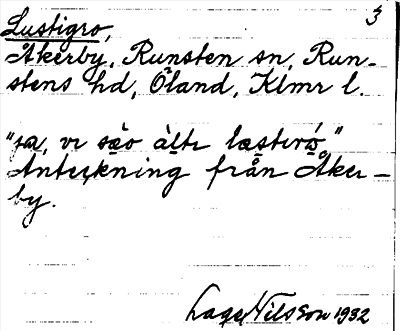 3
Lustigro,
Åkerby, Runsten sn, Run-
stens hd, Öland, Klmr l.
"ja, vi säo älte læsterö"
Anteckning från Åker-
by.
Lage Nilsson 1932